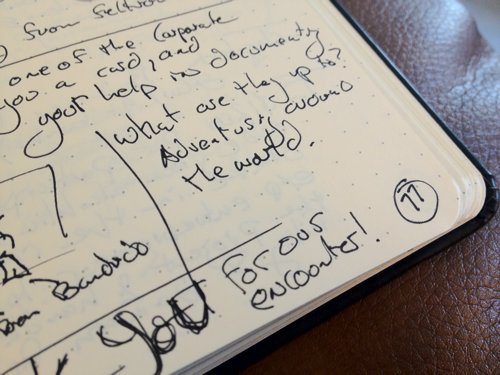 from
one of the Corporate
you a card, and
your help in documenting
What are they up to?
Adventuring around
the world.
you for our
encounter!
11